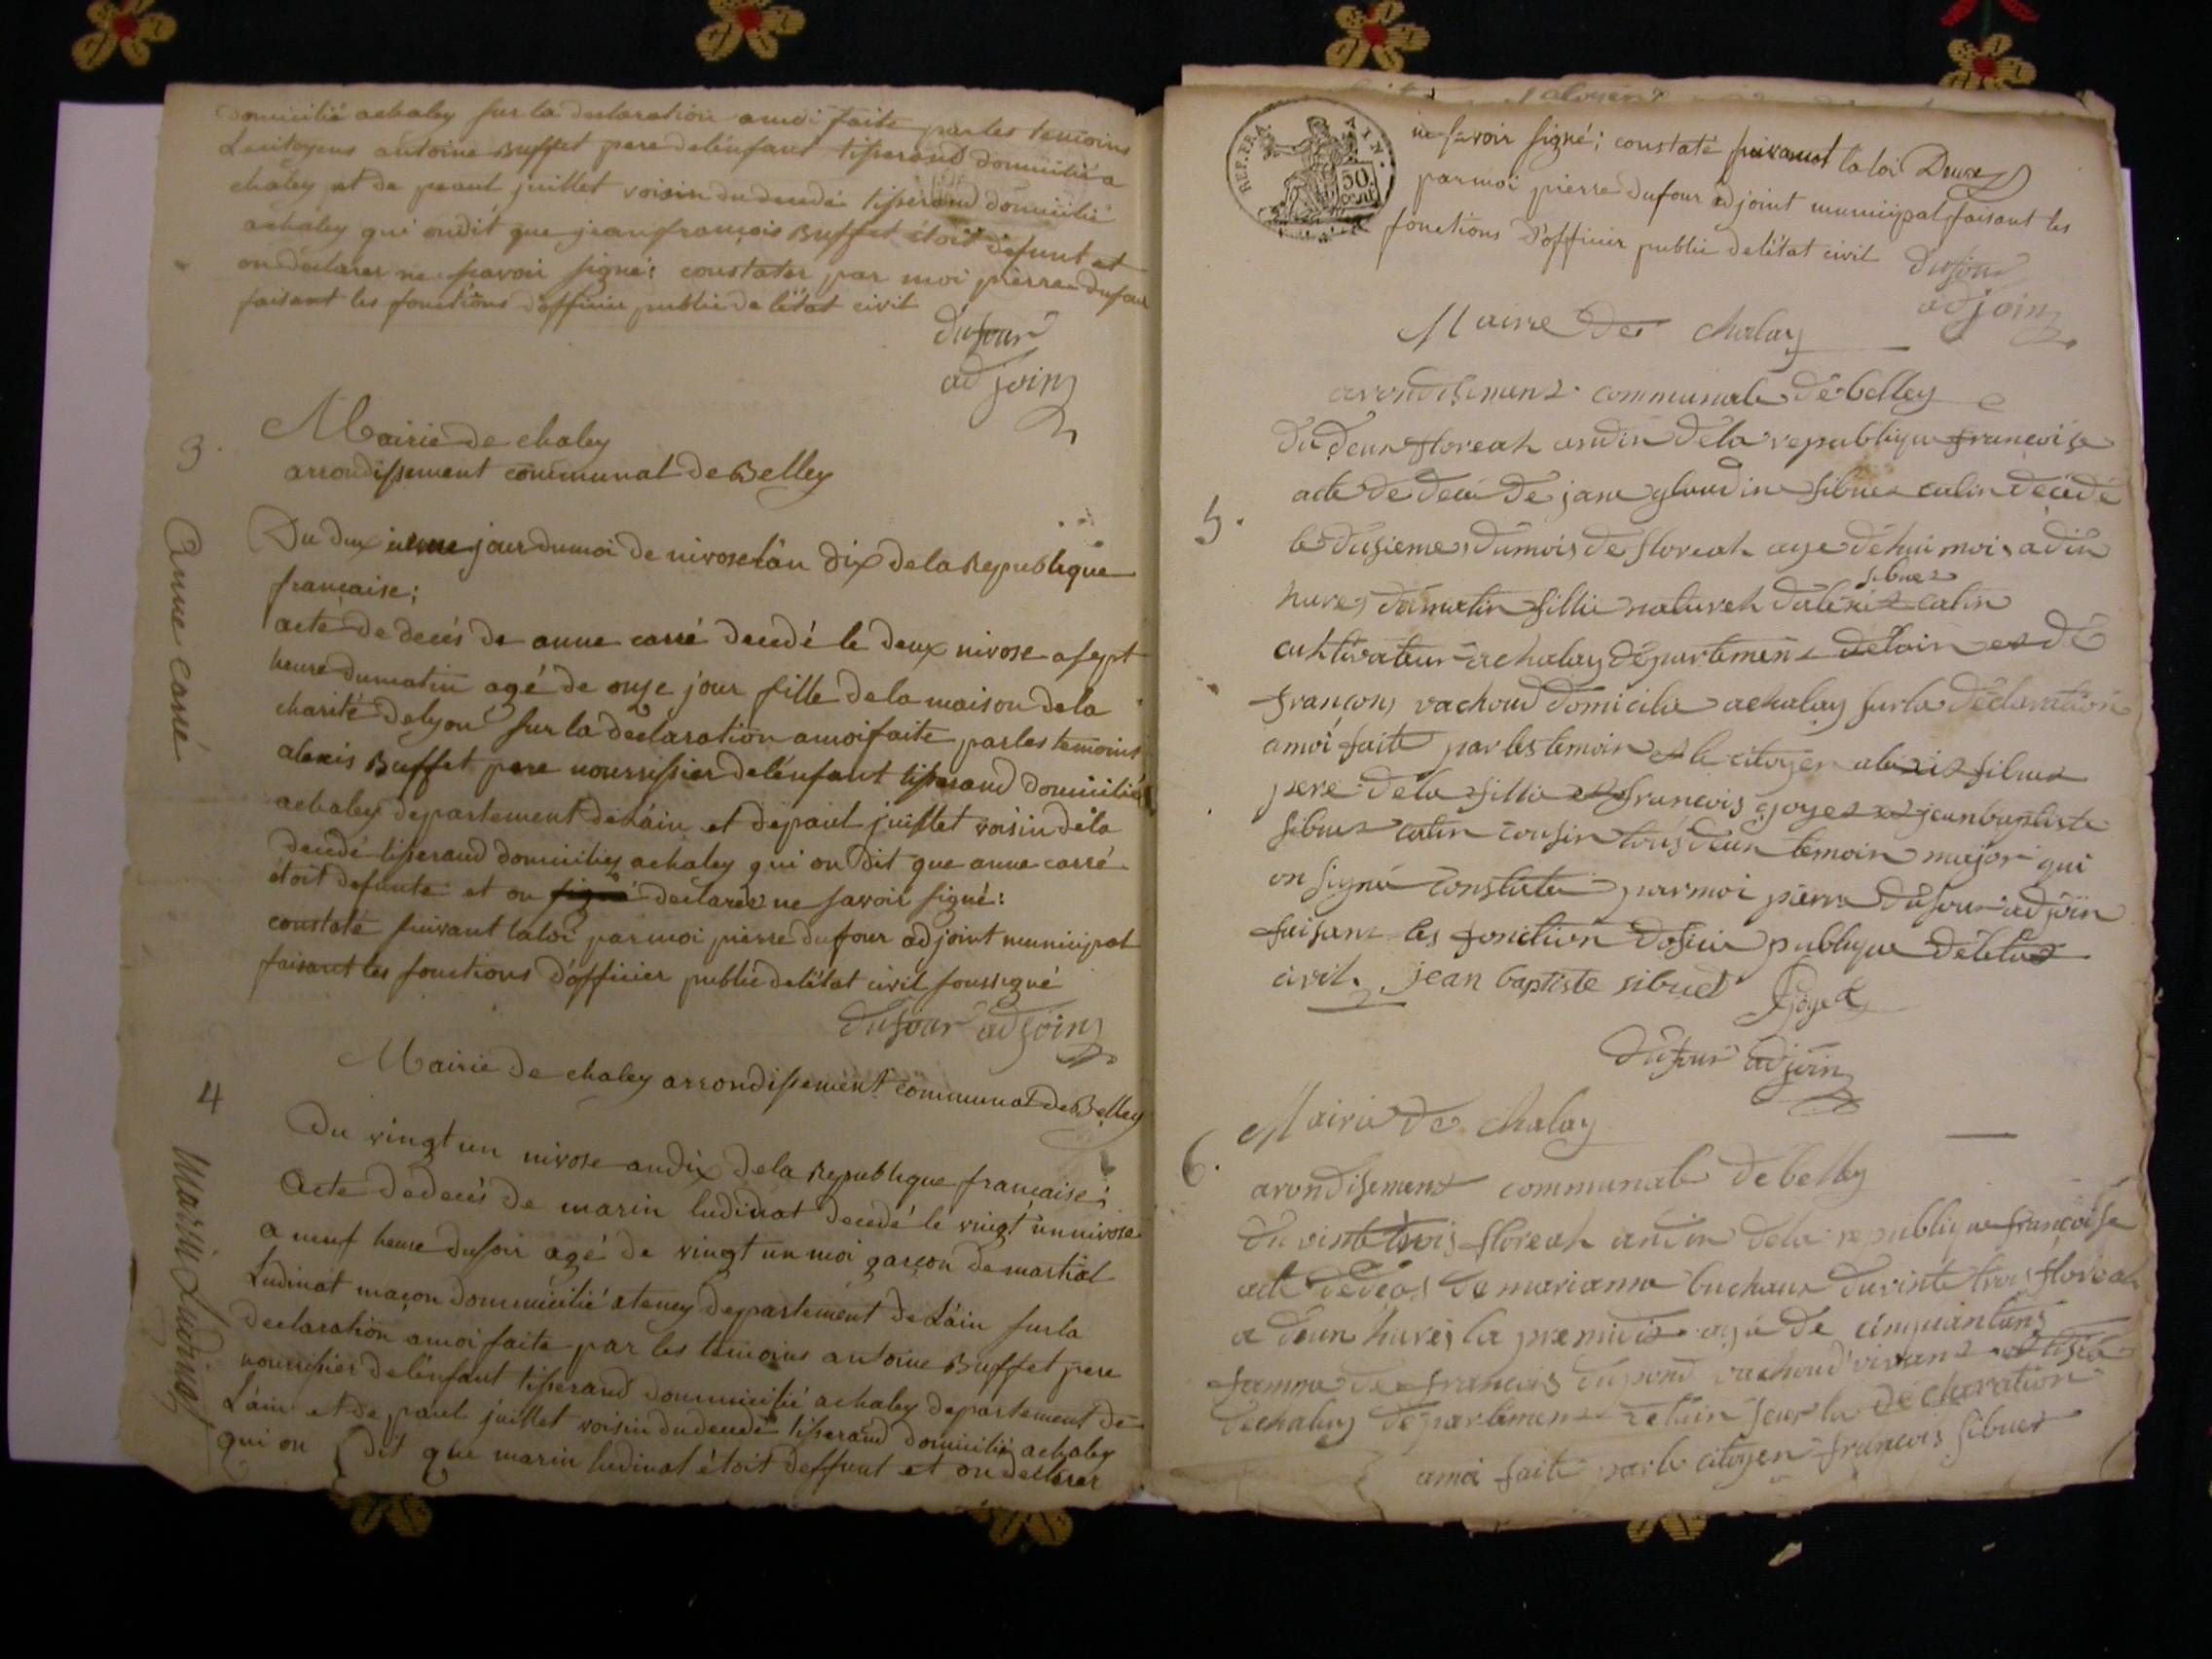 domicilié achaley sur la declaration amoi faite par les temoins
Lecitoyens antoine Buffet pere delénfant tisserand domicilié a
chaley et de paul juillet voisin du decedé tisserand domicilié
achaley qui ondit que jeanfrançois Buffet étoit defunt et
on déclarer ne savoir signé: constater par moi pierre Dufour
faisant les fonctions d'officier public de l'état civil
Dufour
adjoin
3
Mairie de chaley
arrondissement communal de Belley
Anne carré
Du deux jour du moi de nivose l'an dix de la Republique
française;
acte de decés de anne carré decedé le deux nivose a sept
heure dumatin agé de onze jour fille de la maison de la
charité de lyon sur la declaration amoi faite par les temoins
alexis Buffet pere nourrissier delénfant tisserand domicilié
achaley departement de L'ain et de paul juillet voisin dela
decedé tisserand domiciliez achaley qui on dit que anne carré
étoit defunte et on declarer ne savoir signé:
constaté suivant la loi par moi pierre dufour adjoint municipal
faisant les fonctions d'officier public de l'état civil soussigné
Dufour adjoin
Mairie de chaley arrondissement communal de Belley
4
Marin Ludinat
Du vingt un nivose an dix de la Republique française;
Acte de decés de marin ludinat decedé le vingt un nivose
a neuf heure du soir agé de vingt un moi garçon de martial
Ludinat maçon dommicilié a tenay departement de L'ain sur la
declaration amoi faite par les temoins antoine Buffet pere
nourrissier delénfant tisserand dommicilié achaley departement de
L'ain et de paul juillet voisin du decedé tisserand domicilié achaley
qui on dit que marin ludinat étoit deffunt et on declarer
REP. FRA. AIN.
50 cent
ne savoir signé; constaté suivant la loi
par moi pierre dufour adjoint municipal faisant les
fonctions d'officier public de l'état civil
Dufour
adjoin
Maire De chalay
arondisement communale de belley
du deux floreal andix de la republique francoise
5.
acte de decé de jane glaudine sibuet calin decedé
le dusieme du mois de floreal age de hui mois a dix
hures du matin fillie naturel dalexis sibuet calin
cultivateur a chalay departement delain et de
françois vachoud domicilié achalay sur la declaration
amoi faite par les temoin et le citoyen alexis sibuet
pere de la fillie et francois goyet et jeanbaptiste
sibuet calin cousin tous deux temoin major qui
on signé constaté par moi pierre dufour adjoin
faisant les fonction dofisier publique deletat
civil. jean baptiste sibuet Goyet
Dufour adjoin
Mairie de chalay
6.
arondisement communale de belley
Du vinte trois floreal andix de la republique françoise
acte de deces de marianne du vinte trois floreal
a deux hures la premidi agé de cinquantans
famme de francois dupond vachoud vivant
dechalay departement delain sur la declaration
amoi faite par le citoyen francois sibuet